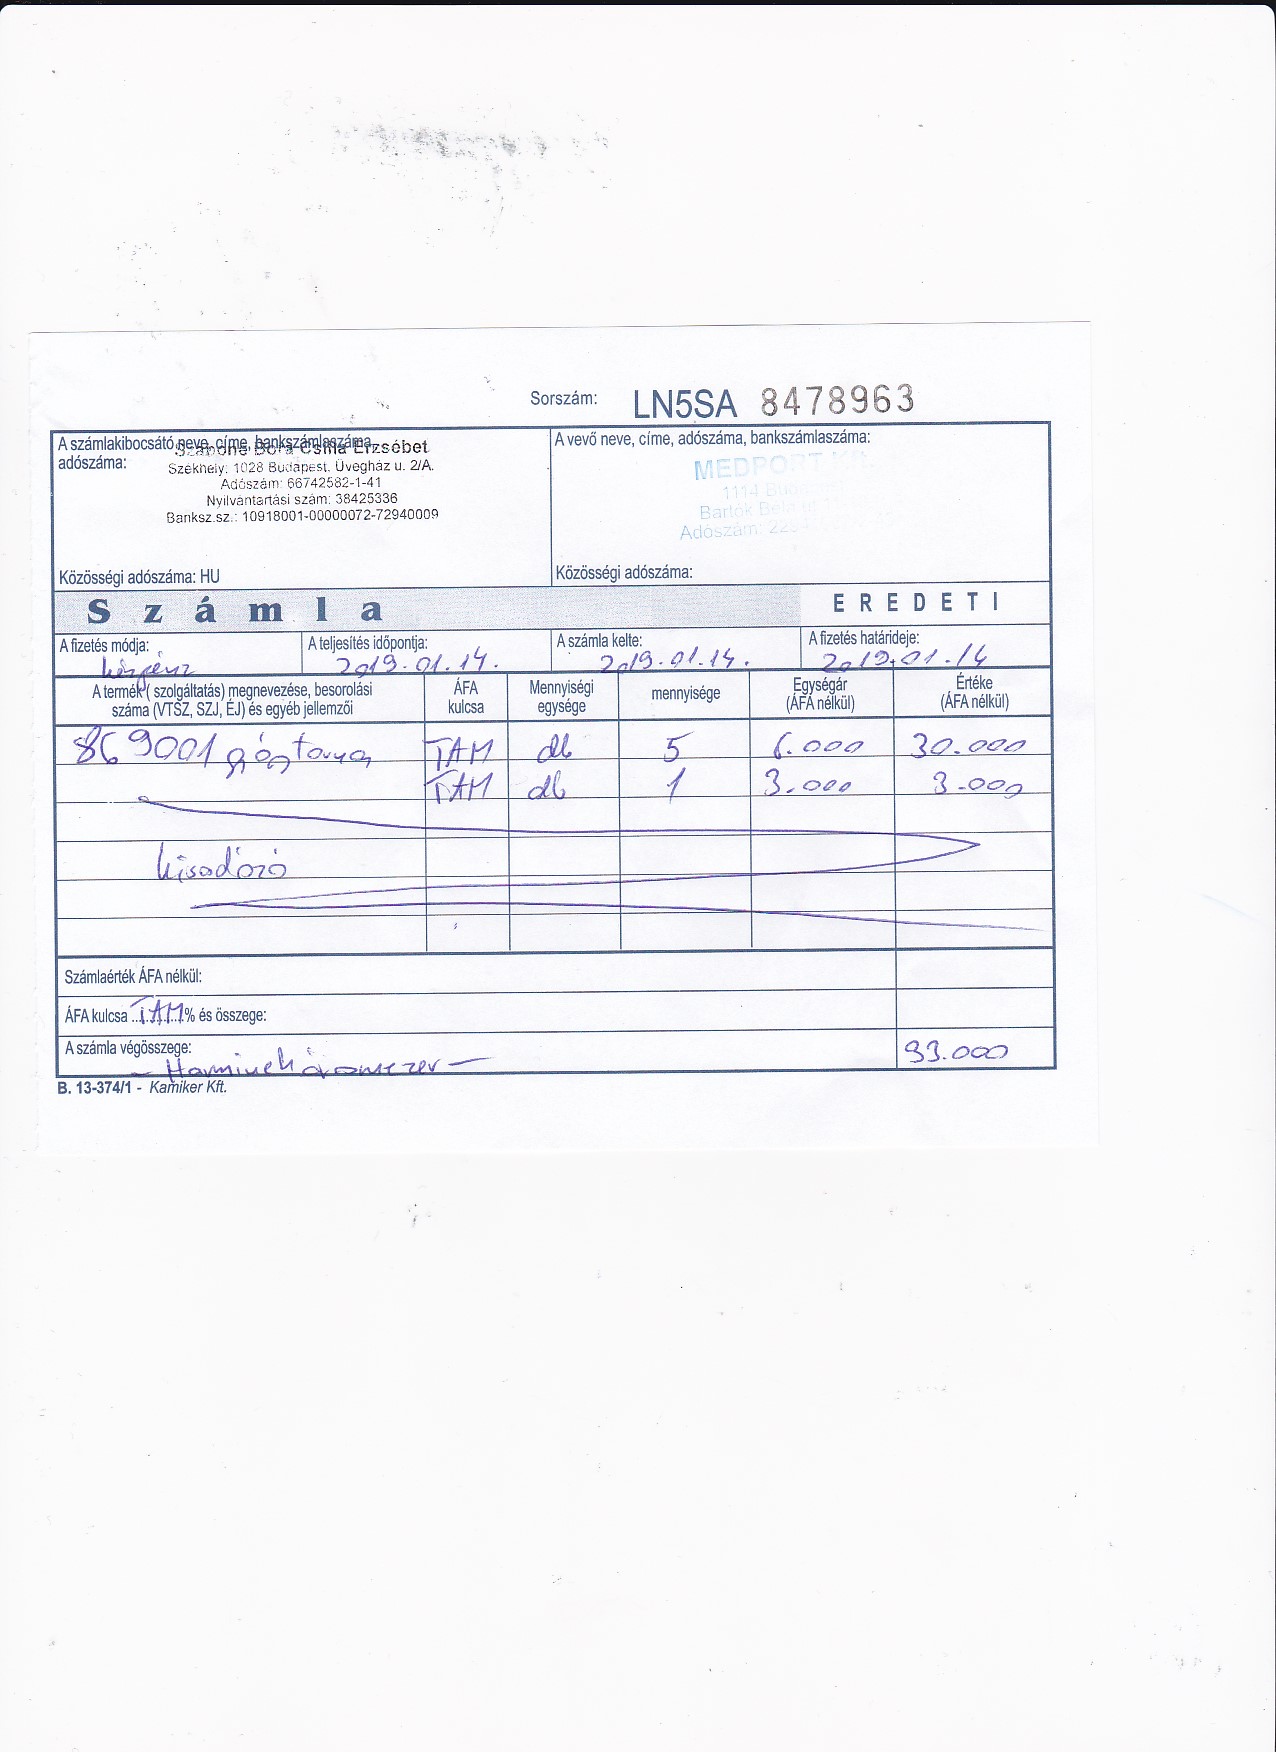 Sorszám: LN5SA 8478963
A számlakibocsátó neve, címe, bankszámlaszáma
adószáma:
Csilla Erzsébet
Székhely: 1028 Budapest. Üvegház u. 2/A.
Adószám: 66742582-1-41
Nyilvántartási szám: 38425336
Banksz.sz.: 10918001-00000072-72940009
Közösségi adószáma: HU
A vevő neve, címe, adószáma, bankszámlaszáma:
MEDPORT Kft.
1114
Bartók Béla
Adószám:
Közösségi adószáma:
Számla
EREDETI
A fizetés módja: készpénz
A teljesítés időpontja: 2019.01.14.
A számla kelte: 2019.01.14.
A fizetés határideje: 2019.01.14
A termék ( szolgáltatás) megnevezése, besorolási száma (VTSZ, SZJ, ÉJ) és egyéb jellemzői
ÁFA kulcsa
Mennyiségi egysége
mennyisége
Egységár (ÁFA nélkül)
Értéke (ÁFA nélkül)
869001 gyógytorna TAM db 5 6.000 30.000
TAM db 1 3.000 3.000
kisadózó
Számlaérték ÁFA nélkül:
ÁFA kulcsa TAM % és összege:
A számla végösszege: 33.000
- Harmincháromezer -
B. 13-374/1 - Kamiker Kft.